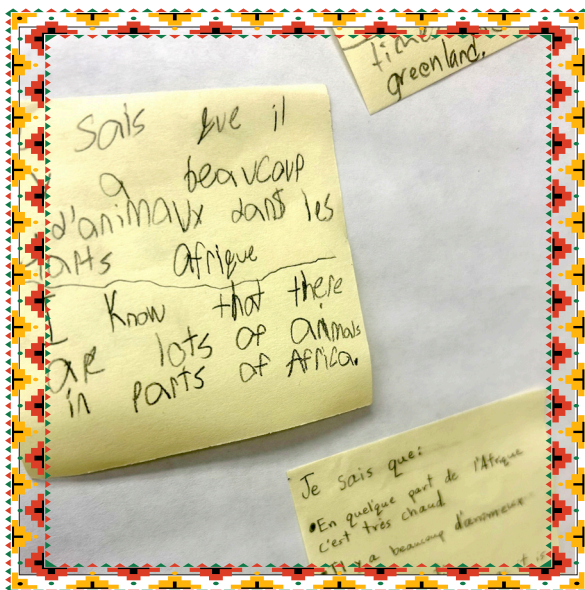 times
greenland.
Sais que il
y a beaucoup
d'animaux dans les
parts afrique
I know that there
are lots of animals
in parts of Africa.
Je sais que:
•En quelque part de l'Afrique
c'est très chaud
Il y a beaucoup d'anomeux